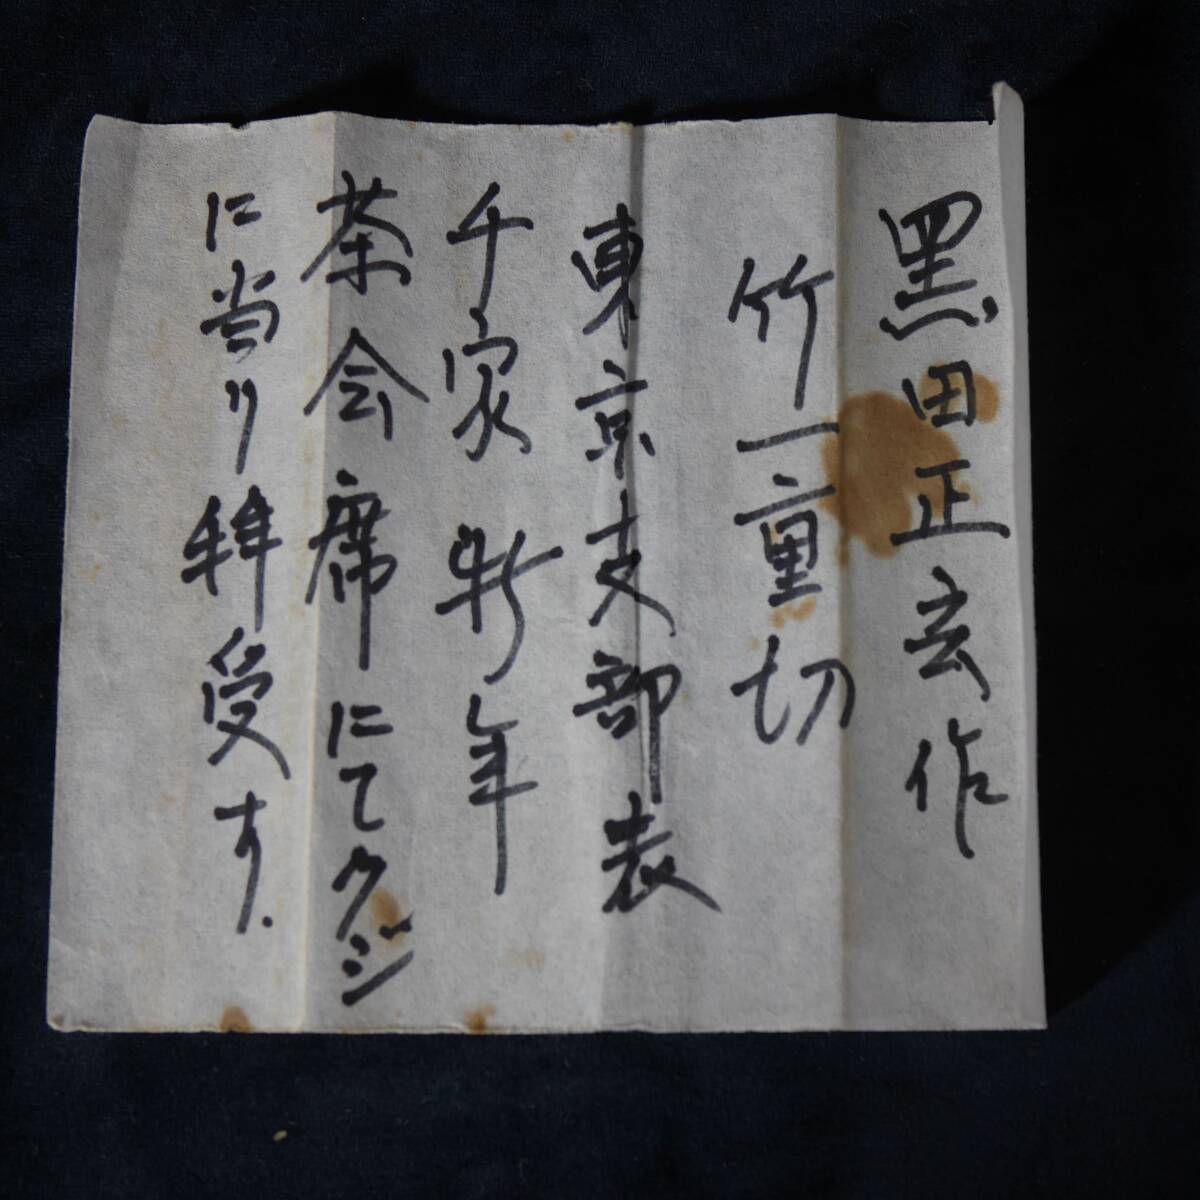 黒田正玄作
竹一重切
東京支部表
千家新年
茶会席にてクジ
に当り拝受す.